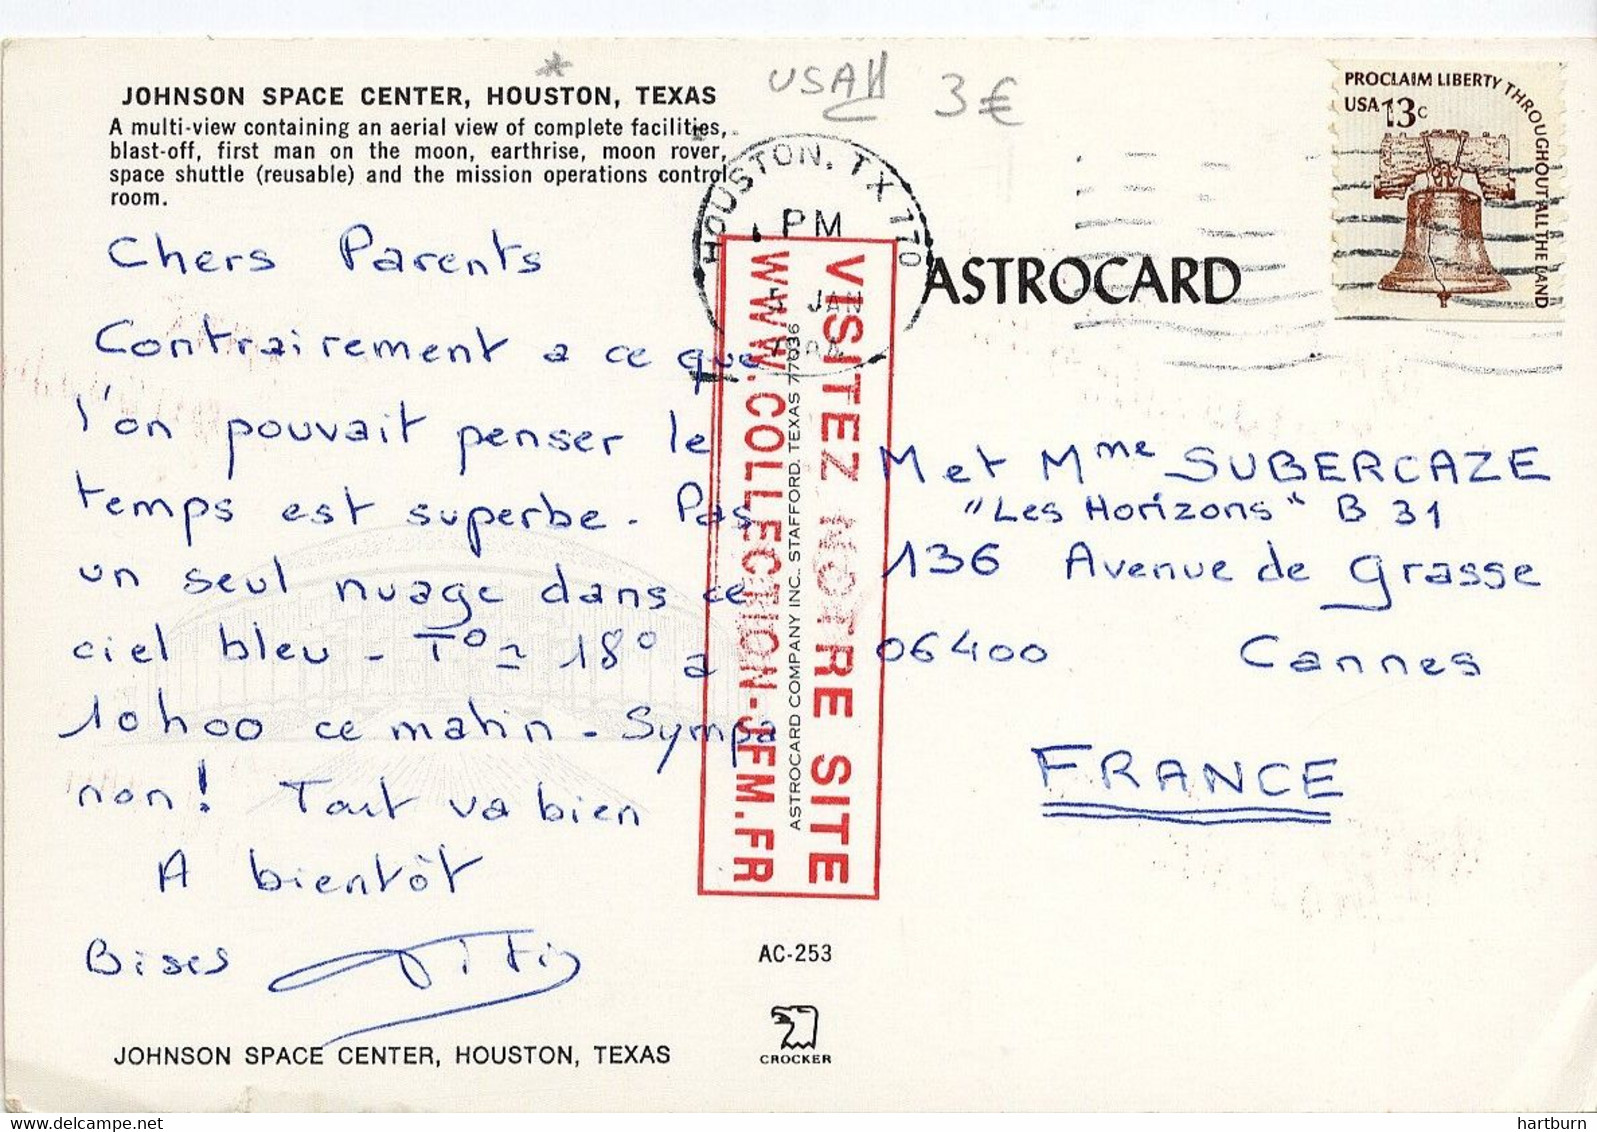 USA
3€
JOHNSON SPACE CENTER, HOUSTON, TEXAS
A multi-view containing an aerial view of complete facilities,
blast-off, first man on the moon, earthrise, moon rover,
space shuttle (reusable) and the mission operations control
room.
Chers Parents
Contrairement a ce que
l'on pouvait penser le
temps est superbe. Pas
un seul nuage dans ce
ciel bleu - T° ≃ 18° a
10h00 ce matin - Sympa
non! Tout va bien
A bientôt
Bises
JOHNSON SPACE CENTER, HOUSTON, TEXAS
HOUSTON, TX 770
PM
JAN
VISITEZ NOTRE SITE
WWW.COLLECTION-JFM.FR
ASTROCARD COMPANY INC., STAFFORD, TEXAS 77036
AC-253
CROCKER
ASTROCARD
PROCLAIM LIBERTY THROUGHOUT ALL THE LAND
USA 13c
M et Mme SUBERCAZE
"Les Horizons" B 31
136 Avenue de Grasse
06400 Cannes
FRANCE
www.delcampe.net
hartburn